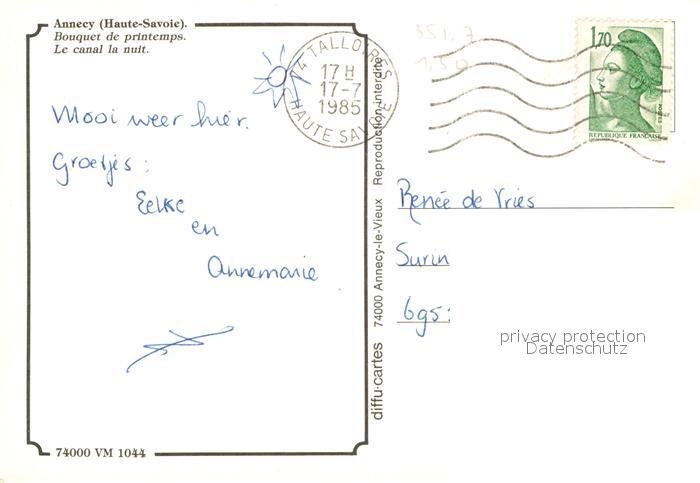 Annecy (Haute-Savoie).
Bouquet de printemps.
Le canal la nuit.
Mooi weer hier.
Groetjes :
Eelke
en
Annemarie
74000 VM 1044
diffu-cartes 74000 Annecy-le-Vieux Reproduction interdite
74 TALLOIRES
17 H
17-7
1985
HAUTE SAVOIE
351.7
1,50
1,70
REPUBLIQUE FRANÇAISE
POSTES
Renée de Vries
Surin
bgs:
privacy protection
Datenschutz